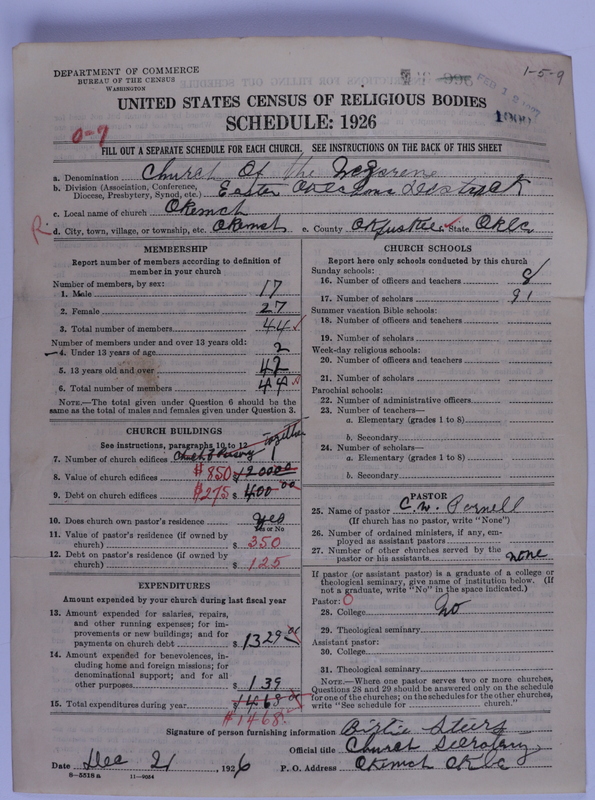 DEPARTMENT OF COMMERCE
BUREAU OF THE CENSUS
WASHINGTON
1-5-9
UNITED STATES CENSUS OF RELIGIOUS BODIES
SCHEDULE: 1926
0-7
FILL OUT A SEPARATE SCHEDULE FOR EACH CHURCH. SEE INSTRUCTIONS ON THE BACK OF THIS SHEET
a. Denomination Church Of the Nazarene
b. Division (Association, Conference, Diocese, Presbytery, Synod, etc.)
c. Local name of church Okemah
R d. City, town, village, or township, etc. Okemah e. County Okfuskee State Okla
MEMBERSHIP
Report number of members according to definition of
member in your church
Number of members, by sex:
1. Male 17
2. Female 27
3. Total number of members 44
Number of members under and over 13 years old:
4. Under 13 years of age 2
5. 13 years old and over 42
6. Total number of members 44
NOTE.—The total given under Question 6 should be
the same as the total of males and females given under Question 3.
CHURCH BUILDINGS
See instructions, paragraphs 10 to 12 together
7. Number of church edifices 1
8. Value of church edifices $850 $
9. Debt on church edifices $275 $ 400 00
10. Does church own pastor's residence yes
Yes or No
11. Value of pastor's residence (if owned by
church) $ 350
12. Debt on pastor's residence (if owned by
church) $ 125
EXPENDITURES
Amount expended by your church during last fiscal year
13. Amount expended for salaries, repairs,
and other running expenses; for im-
provements or new buildings; and for
payments on church debt $ 1329
14. Amount expended for benevolences, in-
cluding home and foreign missions; for
denominational support; and for all
other purposes $ 139
15. Total expenditures during year $ 1468
$1468
CHURCH SCHOOLS
Report here only schools conducted by this church
Sunday schools:
16. Number of officers and teachers 8
17. Number of scholars 91
Summer vacation Bible schools:
18. Number of officers and teachers
19. Number of scholars
Week-day religious schools:
20. Number of officers and teachers
21. Number of scholars
Parochial schools:
22. Number of administrative officers
23. Number of teachers—
a. Elementary (grades 1 to 8)
b. Secondary
24. Number of scholars—
a. Elementary (grades 1 to 8)
b. Secondary
PASTOR
25. Name of pastor C. W.
(If church has no pastor, write "None")
26. Number of ordained ministers, if any, em-
ployed as assistant pastors
27. Number of other churches served by the
pastor or his assistants none
If pastor (or assistant pastor) is a graduate of a college or
theological seminary, give name of institution below. (If
not a graduate, write "No" in the space indicated.)
Pastor: 0
28. College No
29. Theological seminary
Assistant pastor:
30. College
31. Theological seminary
NOTE.—Where one pastor serves two or more churches,
Questions 28 and 29 should be answered only on the schedule
for one of the churches; on the schedules for the other churches,
write "See schedule for church."
Signature of person furnishing information
Official title Church Secretary
Date Dec 21 1926 P. O. Address Okemah Okla
8-5518 a 11-9034